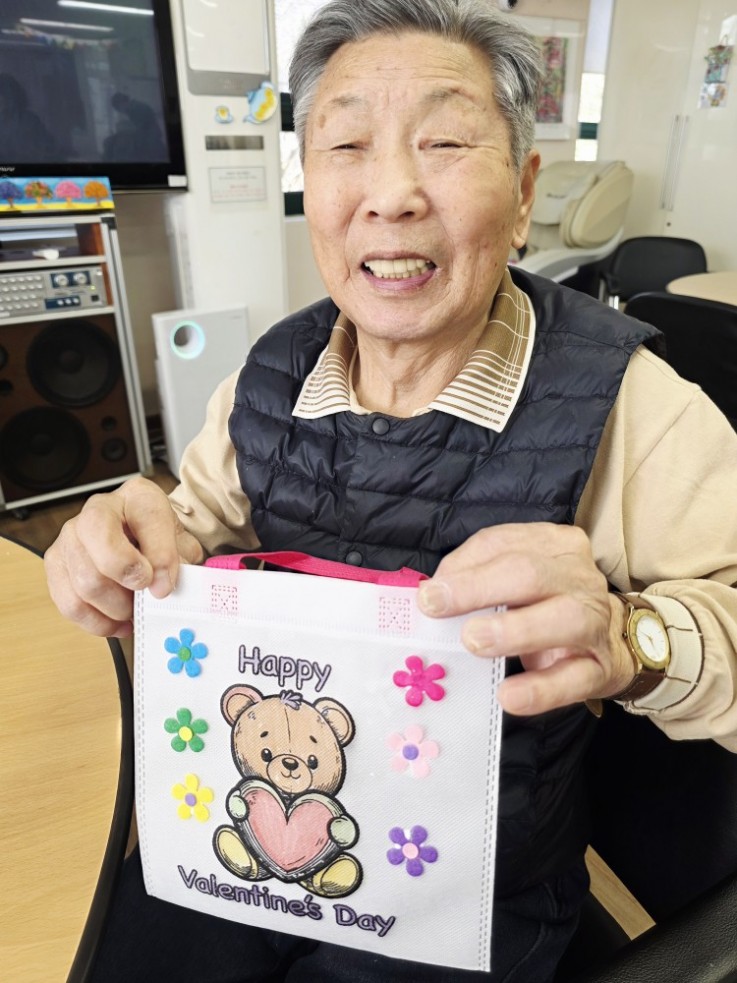 Happy
Valentine's Day